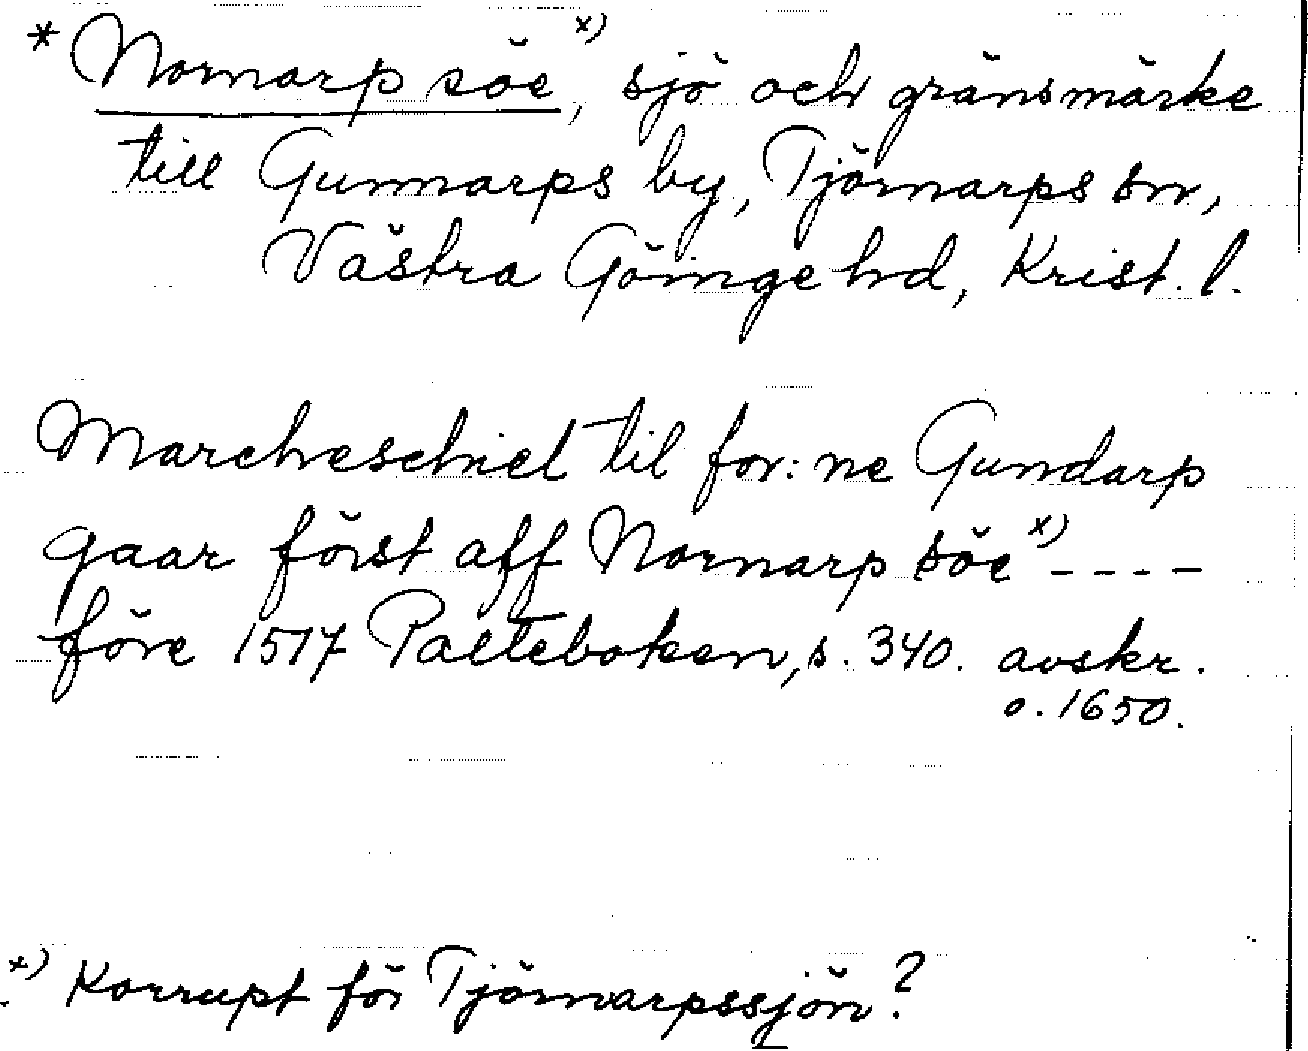 * Nornarp söe x), sjö och gränsmärke
till Gunnarps by, Tjörnarps sn,
Västra Göinge hd, Krist. l.
Marcheschiel til for: ne Gundarp
gaar först aff Nornarp söe x) ----
före 1517 Palteboken, s. 340. avskr.
o. 1650.
x) Korrupt för Tjörnarpssjön?